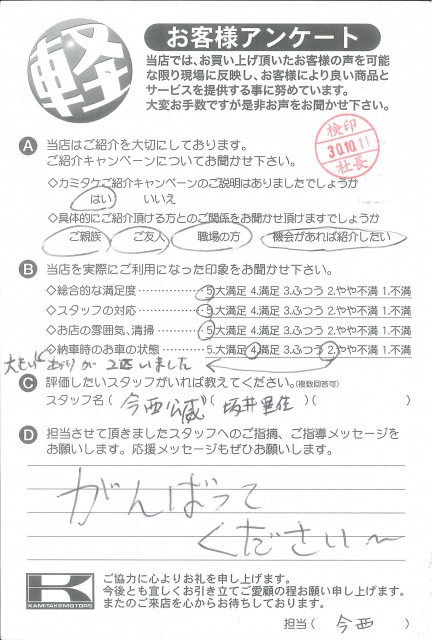 軽
お客様アンケート
当店では、お買い上げ頂いたお客様の声を可能
な限り現場に反映し、お客様により良い商品と
サービスを提供する事に努めています。
大変お手数ですが是非お声をお聞かせ下さい。
検印
30.10.11
社長
A 当店はご紹介を大切にしております。
ご紹介キャンペーンについてお聞かせ下さい。
◇カミタケご紹介キャンペーンのご説明はありましたでしょうか
はい いいえ
◇具体的にご紹介頂ける方とのご関係をお聞かせ頂けますでしょうか
ご親族 ご友人 職場の方 機会があれば紹介したい
B 当店を実際にご利用になった印象をお聞かせ下さい。
◇総合的な満足度……………5.大満足 4.満足 3.ふつう 2.やや不満 1.不満
◇スタッフの対応……………5.大満足 4.満足 3.ふつう 2.やや不満 1.不満
◇お店の雰囲気、清掃………5.大満足 4.満足 3.ふつう 2.やや不満 1.不満
◇納車時のお車の状態………5.大満足 4.満足 3.ふつう 2.やや不満 1.不満
が 2匹いました
C 評価したいスタッフがいれば教えてください。(複数回答可)
スタッフ名( 今西公威 )( 坂井里佳 )( )
D 担当させて頂きましたスタッフへのご指摘、ご指導メッセージを
お願いします。応援メッセージもぜひお願いします。
がんばって
ください〜
K
KAMITAKEMOTORS
ご協力に心よりお礼を申し上げます。
今後とも宜しくお引き立てご愛顧の程お願い申し上げます。
またのご来店を心からお待ちしております。
担当( 今西 )